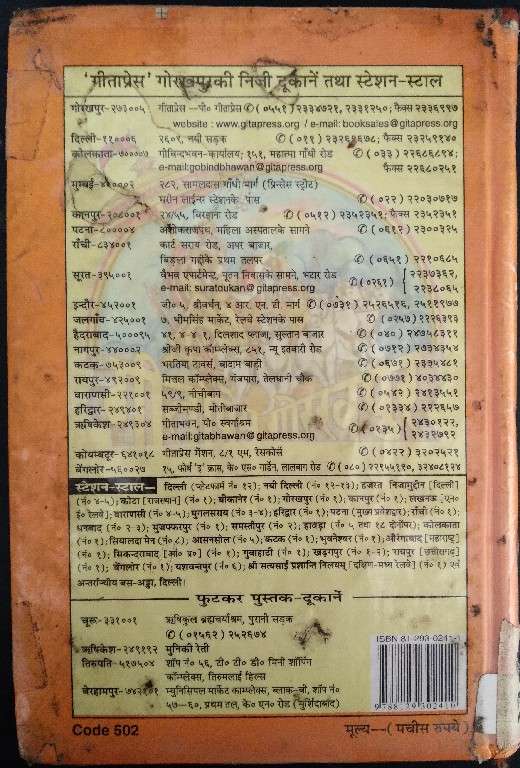 'गीताप्रेस' गोरखपुरकी निजी दूकानें तथा स्टेशन-स्टाल
गोरखपुर-२७३००५ गीताप्रेस—पो० गीताप्रेस ✆ (०५५१) २३३४७२१, २३३१२५०; फैक्स २३३६९९७
website : www.gitapress.org / e-mail: booksales@gitapress.org
दिल्ली-११०००६ २६०९, नयी सड़क ✆ (०११) २३२६९६७८; फैक्स २३२५९१४०
कोलकाता-७००००७ गोबिन्दभवन-कार्यालय; १५१, महात्मा गाँधी रोड ✆ (०३३) २२६८६८९४;
e-mail:gobindbhawan@gitapress.org फैक्स २२६८०२५१
मुम्बई-४००००२ २८२, सामलदास गाँधी मार्ग (प्रिन्सेस स्ट्रीट)
मरीन लाईन्स स्टेशनके पास ✆ (०२२) २२०३०७१७
कानपुर-२०८००१ २४/५५, बिरहाना रोड ✆ (०५१२) २३५२३५१; फैक्स २३५२३५१
पटना-८००००४ अशोकराजपथ, महिला अस्पतालके सामने ✆ (०६१२) २३००३२५
राँची-८३४००१ कार्ट सराय रोड, अपर बाजार,
बिड़ला गद्दीके प्रथम तलपर ✆ (०६५१) २२१०६८५
सूरत-३९५००१ वैभव एपार्टमेन्ट, नूतन निवासके सामने, भटार रोड ✆ (०२६१) २२३७३६२,
e-mail: suratdukan@gitapress.org २२३८०६५
इन्दौर-४५२००१ जी० ५, श्रीवर्धन, ४ आर. एन. टी. मार्ग ✆ (०७३१) २५२६५१६, २५११९७७
जलगाँव-४२५००१ ७, भीमसिंह मार्केट, रेलवे स्टेशनके पास ✆ (०२५७) २२२६३९३
हैदराबाद-५०००९५ ४१, ४-४-१, दिलशाद प्लाजा, सुल्तान बाजार ✆ (०४०) २४७५८३११
नागपुर-४४०००२ श्रीजी कृपा कॉम्प्लेक्स, ८५१, न्यू इतवारी रोड ✆ (०७१२) २७३४३५४
कटक-७५३००९ भरतिया टावर्स, बादाम बाड़ी ✆ (०६७१) २३३५४८१
रायपुर-४९२००९ मित्तल कॉम्प्लेक्स, गंजपारा, तेलघानी चौक ✆ (०७७१) ४०३४४३०
वाराणसी-२२१००१ ५९/९, नीचीबाग ✆ (०५४२) २४१३५५१
हरिद्वार-२४९४०१ सब्जीमण्डी, मोतीबाजार ✆ (०१३३४) २२२६५७
ऋषिकेश-२४९३०४ गीताभवन, पो० स्वर्गाश्रम ✆ (०१३५) २४३०१२२,
e-mail:gitabhawan@gitapress.org २४३२७९२
कोयम्बटूर-६४१०१८ गीताप्रेस मेंशन, ८/१ एम, रेसकोर्स ✆ (०४२२) ३२०२५२१
बेंगलोर-५६००२७ १५, फोर्थ 'इ' क्रास, के० एस० गार्डेन, लालबाग रोड ✆ (०८०) २२९५५१९०, ३२४०८१२४
स्टेशन-स्टाल— दिल्ली (प्लेटफार्म नं० १२); नयी दिल्ली (नं० १२-१३); हजरत निजामुद्दीन [दिल्ली]
(नं० ४-५); कोटा [राजस्थान] (नं० १); बीकानेर (नं० १); गोरखपुर (नं० १); कानपुर (नं० १); लखनऊ [एन०
ई० रेलवे]; वाराणसी (नं० ४-५); मुगलसराय (नं० ३-४); हरिद्वार (नं० १); पटना (मुख्य प्रवेशद्वार); राँची (नं० १);
धनबाद (नं० २-३); मुजफ्फरपुर (नं० १); समस्तीपुर (नं० २); हावड़ा (नं० ५ तथा १८ दोनोंपर); कोलकाता
(नं० १); सियालदा मेन (नं० ८); आसनसोल (नं० ५); कटक (नं० १); भुवनेश्वर (नं० १); औरंगाबाद [महाराष्ट्र]
(नं० १); सिकन्दराबाद [आं० प्र०] (नं० १); गुवाहाटी (नं० १); खड़गपुर (नं० १-२); रायपुर [छत्तीसगढ़]
(नं० १); बेंगलोर (नं० १); यशवन्तपुर (नं० ६); श्री सत्यसाई प्रशान्ति निलयम् [दक्षिण-मध्य रेलवे] (नं० १) एवं
अन्तर्राज्यीय बस-अड्डा, दिल्ली।
फुटकर पुस्तक-दूकानें
चूरू-३३१००१ ऋषिकुल ब्रह्मचर्याश्रम, पुरानी सड़क
✆ (०१५६२) २५२६७४
ऋषिकेश-२४९१९२ मुनिकी रेती
तिरुपति-५१७५०४ शॉप नं० ५६, टी० टी० डी० मिनी शॉपिंग
कॉम्प्लेक्स, तिरुमलाई हिल्स
बेरहामपुर-७४२१०१ म्युनिसिपल मार्केट काम्प्लेक्स, ब्लाक-बी, शॉप नं०
५७—६०, प्रथम तल, के० एन० रोड (मुर्शिदाबाद)
ISBN 81-293-0241-1
9 788129 302410
Code 502
मूल्य—(पचीस रुपये)